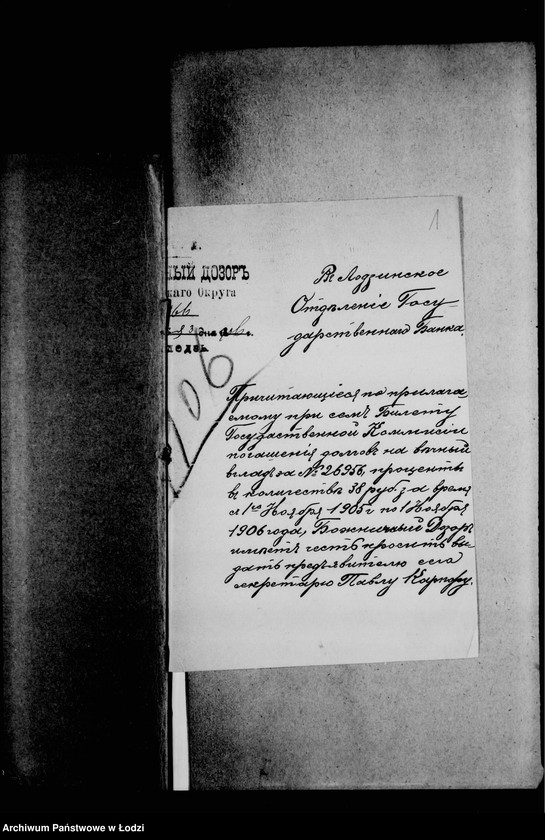 1
НЫЙ ДОЗОРЪ
каго Округа
Въ Лодзинское
Отдѣленіе Госу-
дарственнаго Банка.
106
Причитающіеся по прилага
емому при семъ Билету
Государственной Коммисіи
погашенія долговъ на вѣчный
вкладъ за № 26956, проценты
въ количествѣ 38 руб. за время
съ 1го Ноября 1905 г по 1 Ноября
1906 года, Божничный Дозоръ
имѣетъ честь просить вы-
дать предъявителю сего
секретарю Павлу
Archiwum Państwowe w Łodzi